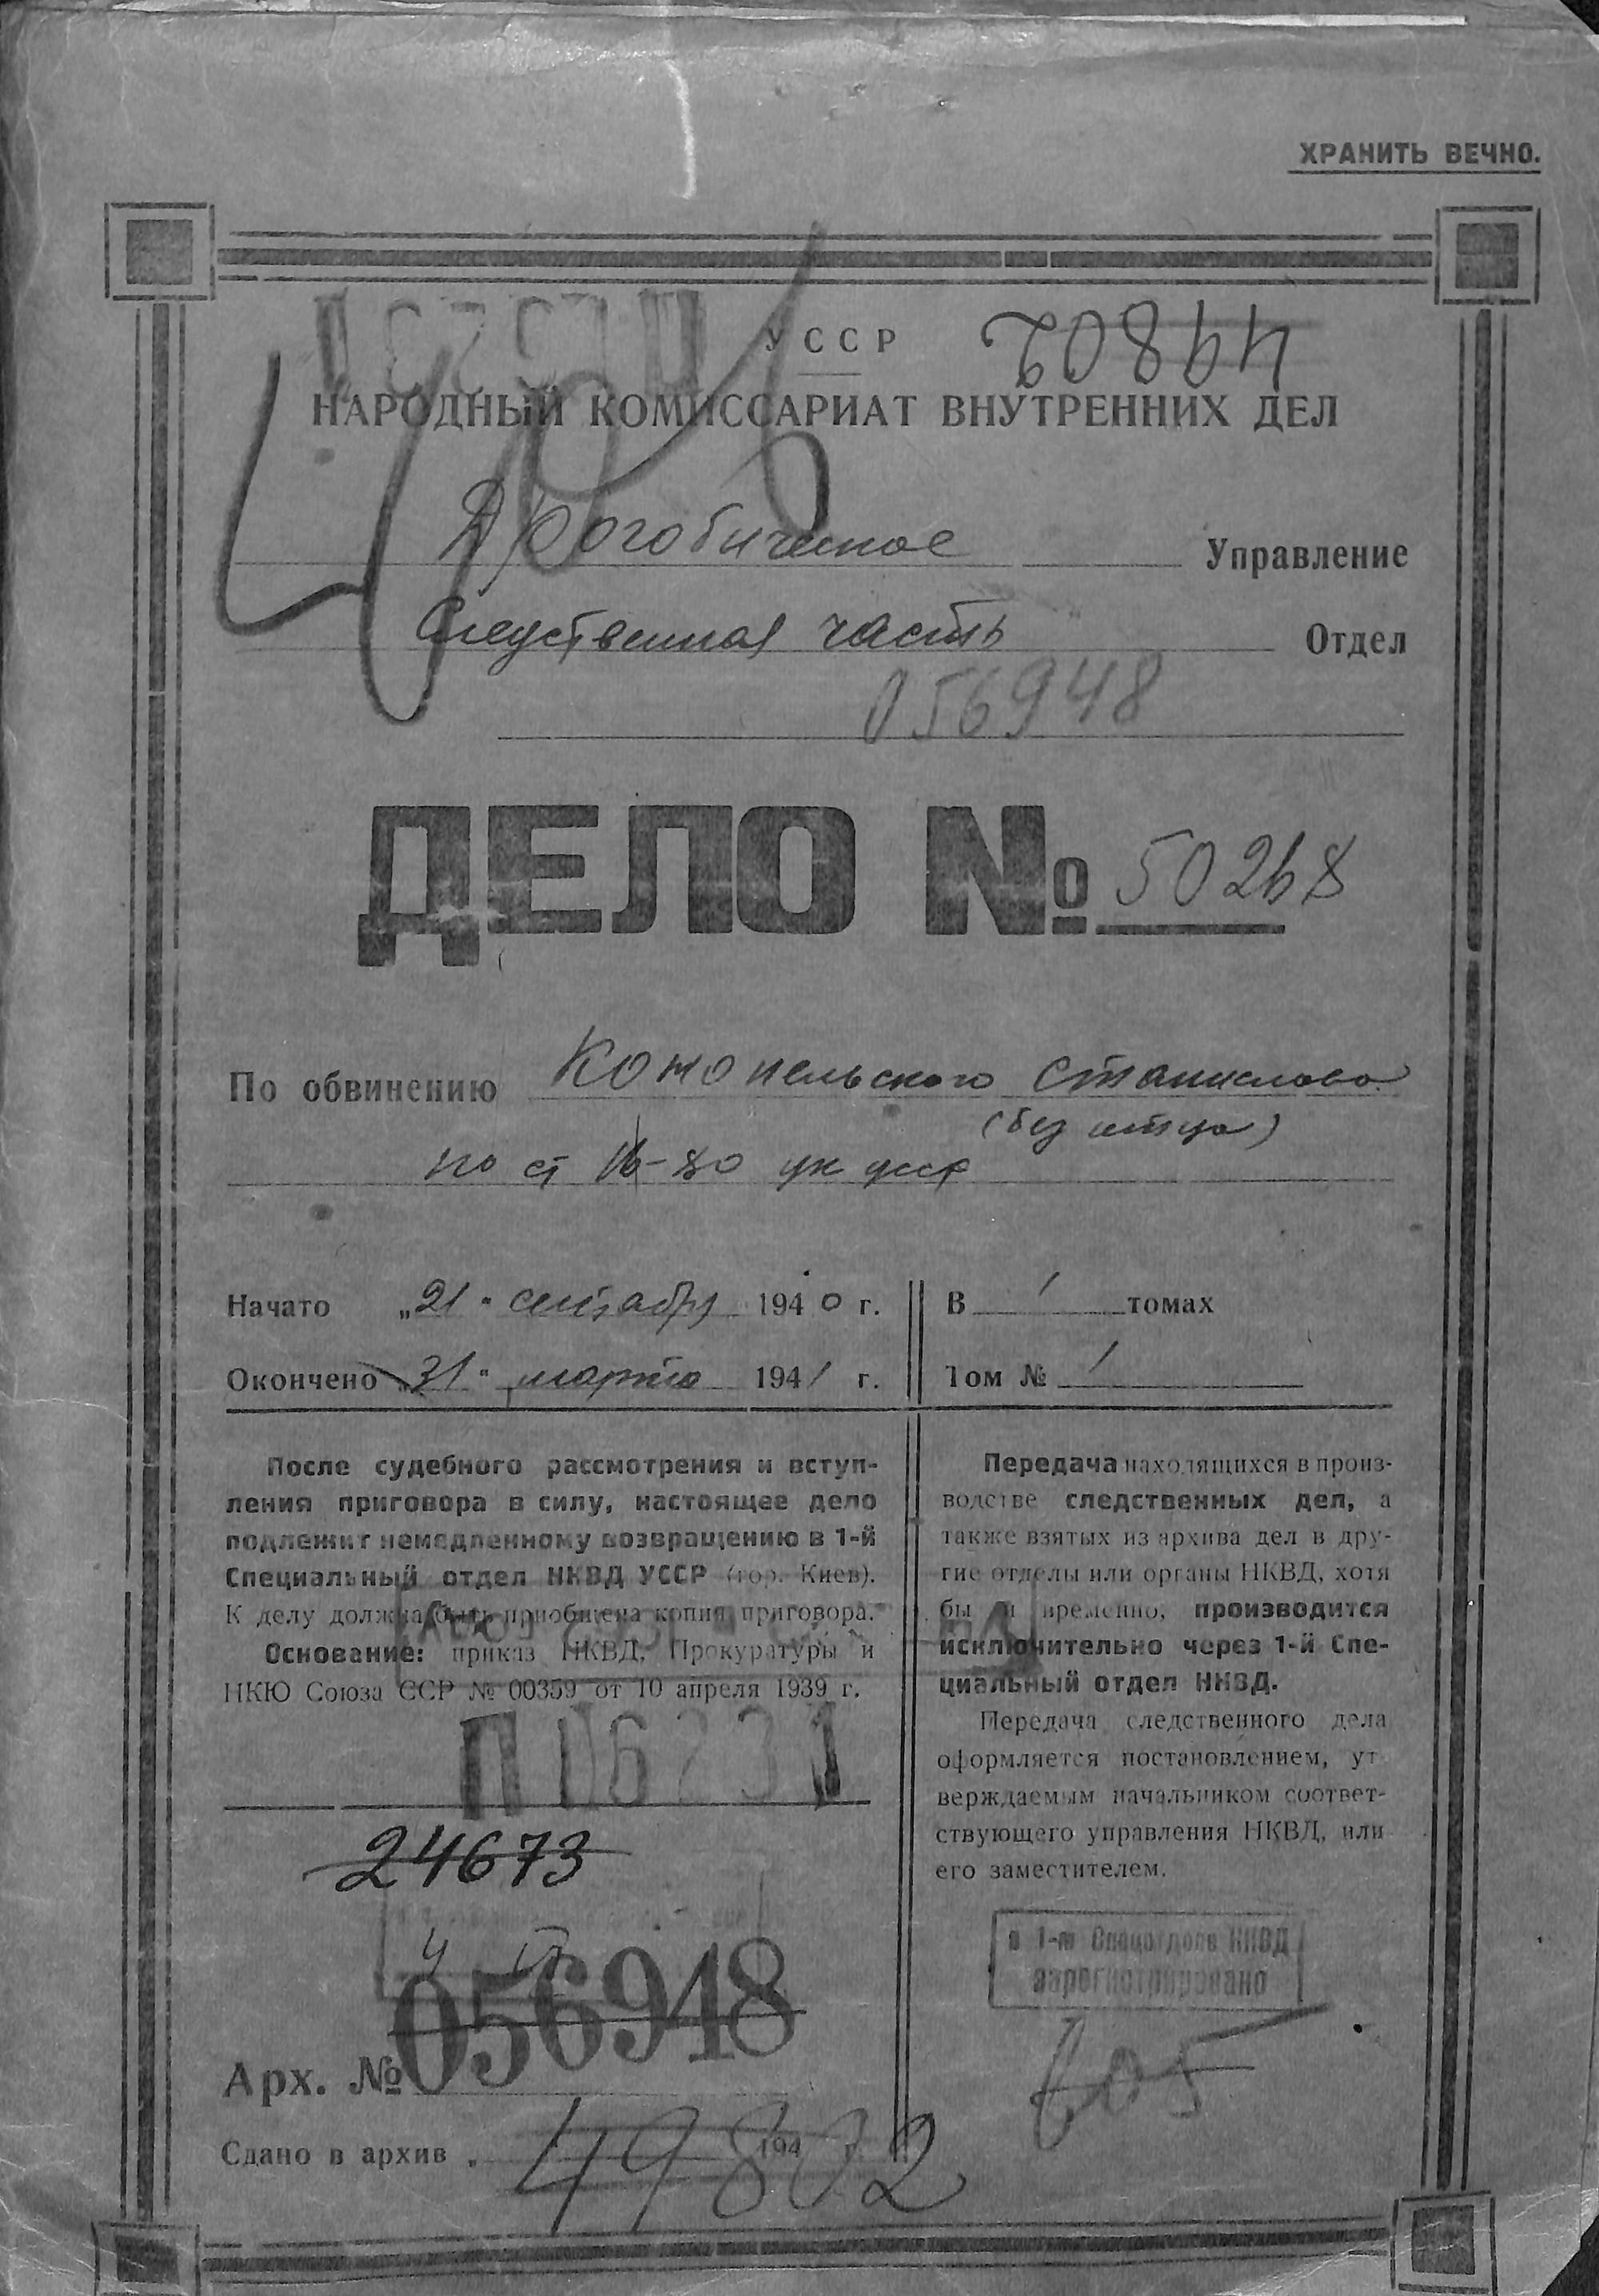 ХРАНИТЬ ВЕЧНО.
УССР
49802
НАРОДНЫЙ КОМИССАРИАТ ВНУТРЕННИХ ДЕЛ
Дрогобичское Управление
Следственная часть Отдел
056948
ДЕЛО № 50268
По обвинению Конопельского Станислава
(без отца)
по ст 16-80 ук усср
Начато „21" сентября 1940 г.
Окончено „31" марта 1941 г.
В 1 томах
Том № 1
После судебного рассмотрения и вступ-
ления приговора в силу, настоящее дело
подлежит немедленному возвращению в 1-й
Специальный отдел НКВД УССР (гор. Киев).
К делу должна быть приобщена копия приговора.
Основание: приказ НКВД, Прокуратуры и
НКЮ Союза ССР № 00359 от 10 апреля 1939 г.
П 16231
24673
056948
Арх. №
Сдано в архив „ 194 г.
49802
Передача находящихся в произ-
водстве следственных дел, а
также взятых из архива дел в дру-
гие отделы или органы НКВД, хотя
бы и временно, производится
исключительно через 1-й Спе-
циальный отдел НКВД.
Передача следственного дела
оформляется постановлением, ут
верждаемым начальником соответ-
ствующего управления НКВД, или
его заместителем.
в 1-м Спецотделе НКВД
зарегистрировано